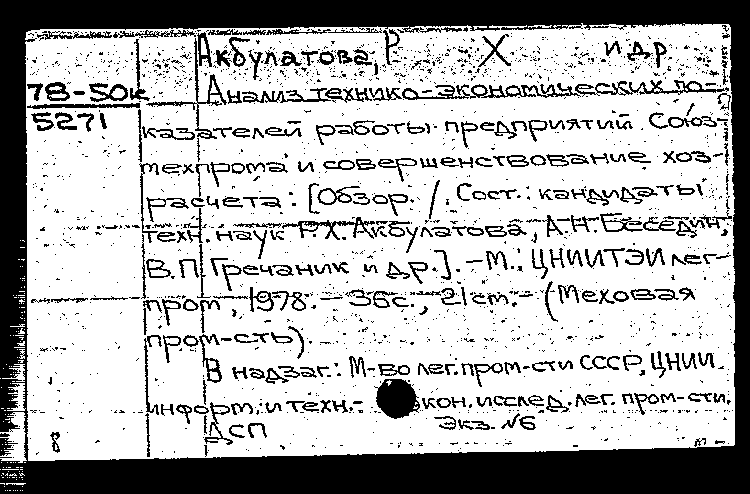 Акбулатова, Р Х и др
78-50к
5271
Анализ технико-экономических по-
казателей работы предприятий Союз-
техпрома и совершенствование хоз-
расчета: [Обзор. /. Сост.: кандидаты
техн. наук Р.Х. Акбулатова, А.Н. Беседин,
В.П. Гречаник и др.]. - М., ЦНИИТЭИлег-
пром, 1978. - 36 с., 21 см. - (Меховая
пром-сть).
В надзаг.: М-во лег. пром-сти СССР, ЦНИИ
информ. и техн.- кон. исслед. лег. пром-сти.
ДСП Экз. №6
8